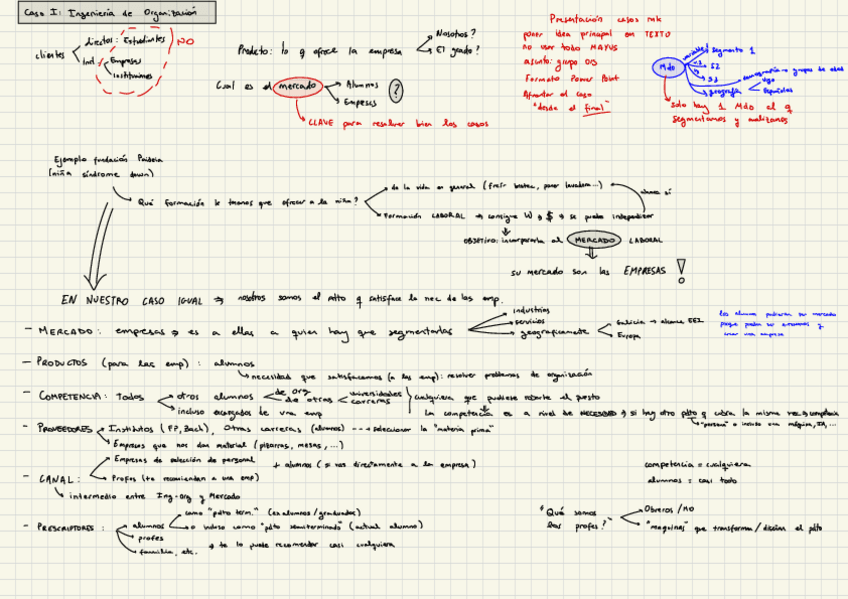 Caso I: Ingeniería de Organización
clientes
directos: Estudiantes
NO
ind.
Empresas
Instituciones
Producto: lo q ofrece la empresa
Nosotros?
El grado?
Cual es el mercado
Alumnos
Empresas
?
CLAVE para resolver bien los casos
Presentación casos mk
poner idea principal en TEXTO
no usar todo MAYUS
asunto: grupo 03
Formato Power Point
Afrontar el caso
"desde el final"
Mdo
variables
segmento 1
S2
S3
demografía → grupos de edad
geografía
Vigo
Españoles
solo hay 1 Mdo el q
segmentamos y analizamos
Ejemplo fundación Paideia
(niña síndrome down)
Qué formación le tenemos que ofrecer a la niña?
de la vida en general (freír bistec, poner lavadora...)
ahora sí
Formación LABORAL → consigue W → $ → se puede independizar
OBJETIVO: incorporarla al MERCADO LABORAL
su mercado son las EMPRESAS !
EN NUESTRO CASO IGUAL → nosotros somos el pdto q satisface la nec de las emp.
- MERCADO: empresas → es a ellas a quien hay que segmentarlas
industrias
servicios
geográficamente
Galicia → alcance EEI
Europa
los alumnos podrían ser mercado
porque pueden ser autónomos y
crear una empresa
- PRODUCTOS (para las emp): alumnos
necesidad que satisfacemos (a las emp): resolver problemas de organización
- COMPETENCIA: todos
otros alumnos
de Org
de otras
universidades
carreras
incluso encargados de una emp
cualquiera que pudiese robarte el puesto
La competencia es a nivel de NECESIDAD → si hay otro pdto q cubra la misma nec → competencia
"persona" o incluso una máquina, IA, ...
- PROVEEDORES
Institutos (FP, Bach), Otras carreras (alumnos) ---→ seleccionar la "materia prima"
Empresas que nos dan material (pizarras, mesas, ...)
- CANAL:
Empresas de selección de personal
Profes (te recomiendan a una emp)
+ alumnos (si vas directamente a la empresa)
intermedio entre Ing-org y Mercado
competencia = cualquiera
alumnos = casi todo
- PRESCRIPTORES:
alumnos
como "pdto term." (exalumnos/graduados)
o incluso como "pdto semiterminado" (actual alumno)
profes
familia, etc. → te lo puede recomendar casi cualquiera
"Qué somos
los profes?"
Obreros /no
"maquinas" que transforma/diseñan el pdto